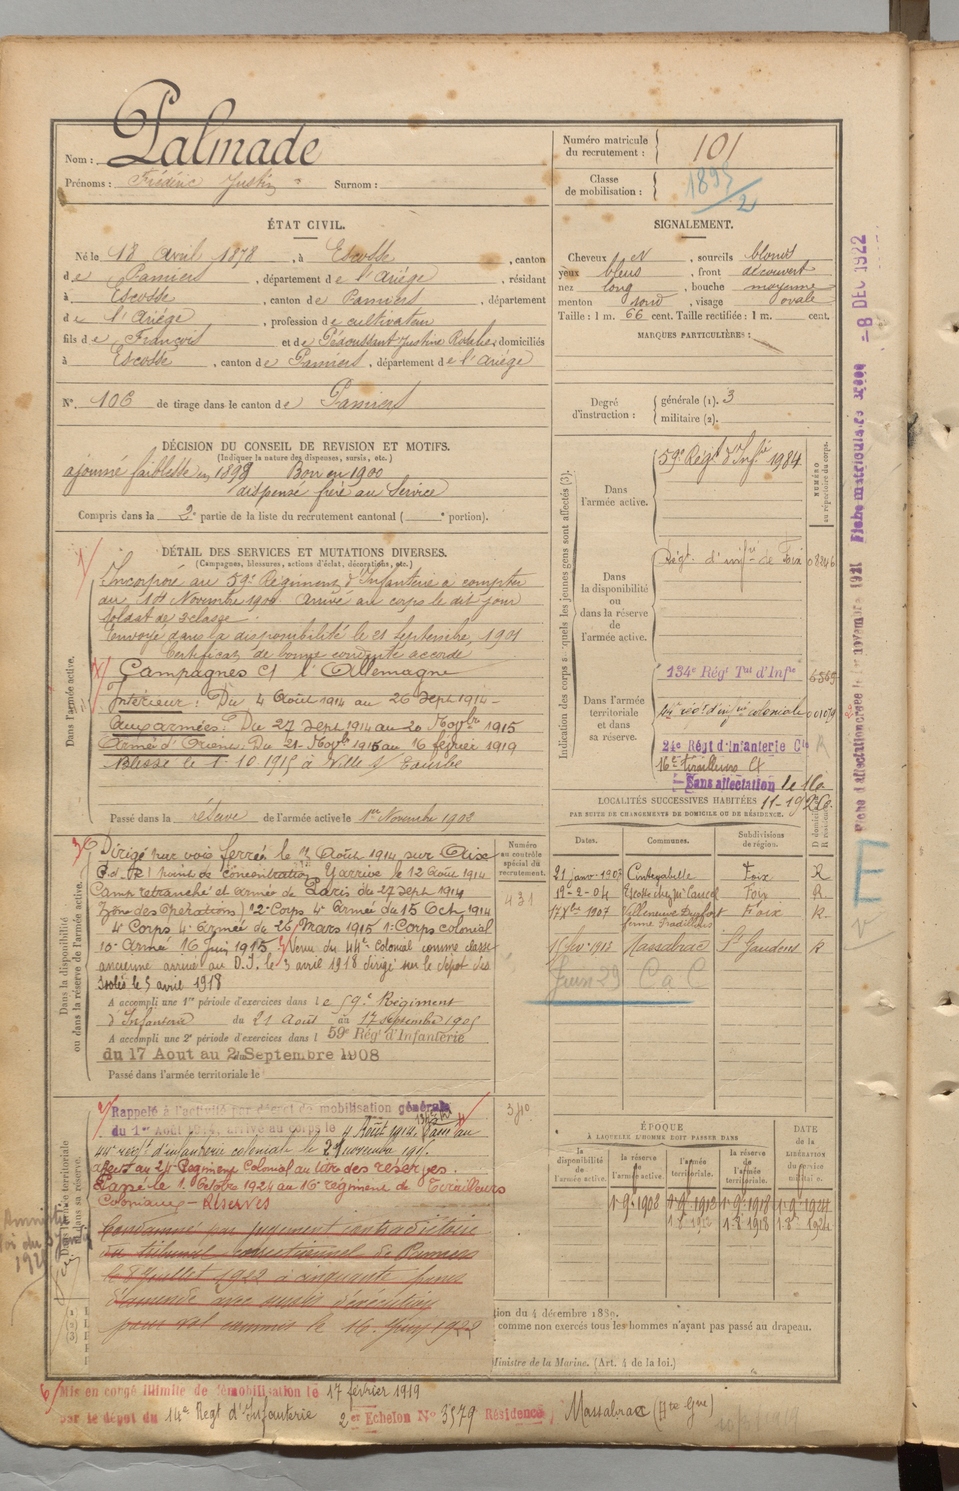 Nom : Palmade
Prénoms : Frédéric Justin Surnom :
Numéro matricule du recrutement : 101
Classe de mobilisation : 1895/2
ÉTAT CIVIL.
Né le 18 Avril 1878, à Escosse, canton
de Pamiers, département de l'Ariége, résidant
à Escosse, canton de Pamiers, département
de l'Ariége, profession de cultivateur
fils de François et de Pédoussant Justine domiciliés
à Escosse, canton de Pamiers, département de l'Ariége
N° 106 de tirage dans le canton de Pamiers
SIGNALEMENT.
Cheveux N, sourcils blonds
yeux bleus, front découvert
nez long, bouche moyenne
menton rond, visage ovale
Taille : 1 m. 66 cent. Taille rectifiée : 1 m. cent.
MARQUES PARTICULIÈRES :
Degré d'instruction : générale (1). 3
militaire (2).
DÉCISION DU CONSEIL DE REVISION ET MOTIFS.
(Indiquer la nature des dispenses, sursis, etc.)
ajourné faiblesse en 1899 Bon en 1900
dispensé frère au Service
Compris dans la 2e partie de la liste du recrutement cantonal ( e portion).
DÉTAIL DES SERVICES ET MUTATIONS DIVERSES.
(Campagnes, blessures, actions d'éclat, décorations, etc.)
Dans l'armée active.
Incorporé au 59e Régiment d'Infanterie à compter
du Novembre 1900 Arrivé au corps le dit jour
soldat de 2e classe.
Envoyé dans la disponibilité le 21 Septembre 1901
Certificat de bonne conduite accordé
Campagnes Ct l'Allemagne
Intérieur : Du 4 Août 1914 au 26 Sept 1914
Aux armées : Du 27 Sept 1914 au 20 Novbre 1915
Armée d'Orient : Du 21 Novbre 1915 au 16 février 1919
Blessé le 1.10.1915 à Ville s/ Tourbe
Passé dans la réserve de l'armée active le 1er Novembre 1903
Indication des corps auxquels les jeunes gens sont affectés (3).
NUMÉRO au répertoire du corps.
Dans l'armée active. 59e Régt d'Infie 1984
Dans la disponibilité ou dans la réserve de l'armée active. Régt d'infie de Foix 08246
Dans l'armée territoriale et dans sa réserve.
134e Régt Tal d'Infie
44e régt d'infie coloniale
24e Régt d'Infanterie Cle
16e tirailleurs Ct
Sans affectation
LOCALITÉS SUCCESSIVES HABITÉES
PAR SUITE DE CHANGEMENTS DE DOMICILE OU DE RÉSIDENCE.
Dates. Communes. Subdivisions de région. D domicile R résidence
21 janv. 1903 Cintegabelle Foix R
19-2-04 Foix R.
17 Xbre 1907 Foix R.
Massabrac St Gaudens R
Juin 29 C a C
Dans la disponibilité ou dans la réserve de l'armée active.
Numéro au contrôle spécial du recrutement.
431
Dirigé par voies ferrées le 12 Août 1914 sur Aix
(B.d.R) point de concentration y arrive le 12 Août 1914
Camp retranché et armée de Paris du 27 Sept 1914
Zone des Opérations) 12e Corps 4e Armée du 15 Oct 1914
4e Corps 4e Armée du 26 Mars 1915 1er Corps colonial
10e Armée 16 Juin 1915 Venu du 44e Colonial comme classe
ancienne arrivé au D.I. le 3 avril 1918 dirigé sur le dépôt des
isolés le 5 avril 1918
A accompli une 1re période d'exercices dans le 59e Régiment
d'Infanterie du 21 Août au 17 septembre 1905
A accompli une 2e période d'exercices dans l 59e Régt d'Infanterie
du 17 Aout au Septembre 1908
Passé dans l'armée territoriale le
Dans l'armée territoriale et dans sa réserve.
340
Rappelé à l'activité par décret de mobilisation générale
du 1er Août 1914, arrivé au corps le 4 Août 1914. Passé au
44e régt d'infanterie coloniale le 21 novembre
affecté au 24e Régiment Colonial au titre des réserves.
Passé le 1 Octobre 1924 au 16e régiment de Tirailleurs
Coloniaux – Réserves
Condamné par jugement contradictoire
du tribunal correctionnel de
le 8 Juillet 1922 à cinquante francs
d'amende avec sursis d'exécution
pour vol commis le 16 Juin 1922
Amnistié
ÉPOQUE
À LAQUELLE L'HOMME DOIT PASSER DANS
la disponibilité de l'armée active.
la réserve de l'armée active.
l'armée territoriale.
la réserve de l'armée territoriale.
DATE DE LA LIBÉRATION du service militaire.
1.9.1908 1.9.1912 1.9.1918 1.9.1924
1.8.1912 1.8.1918 1.8.1924
ion du 4 décembre 1889.
comme non exercés tous les hommes n'ayant pas passé au drapeau.
Ministre de la Marine. (Art. 4 de la loi.)
Mis en congé illimité de démobilisation le 17 février 1919
par le dépôt du 14e Régt d'Infanterie 2er Echelon No 3579 Résidence Massabrac (Hte Gne)
-8 DEC 1922